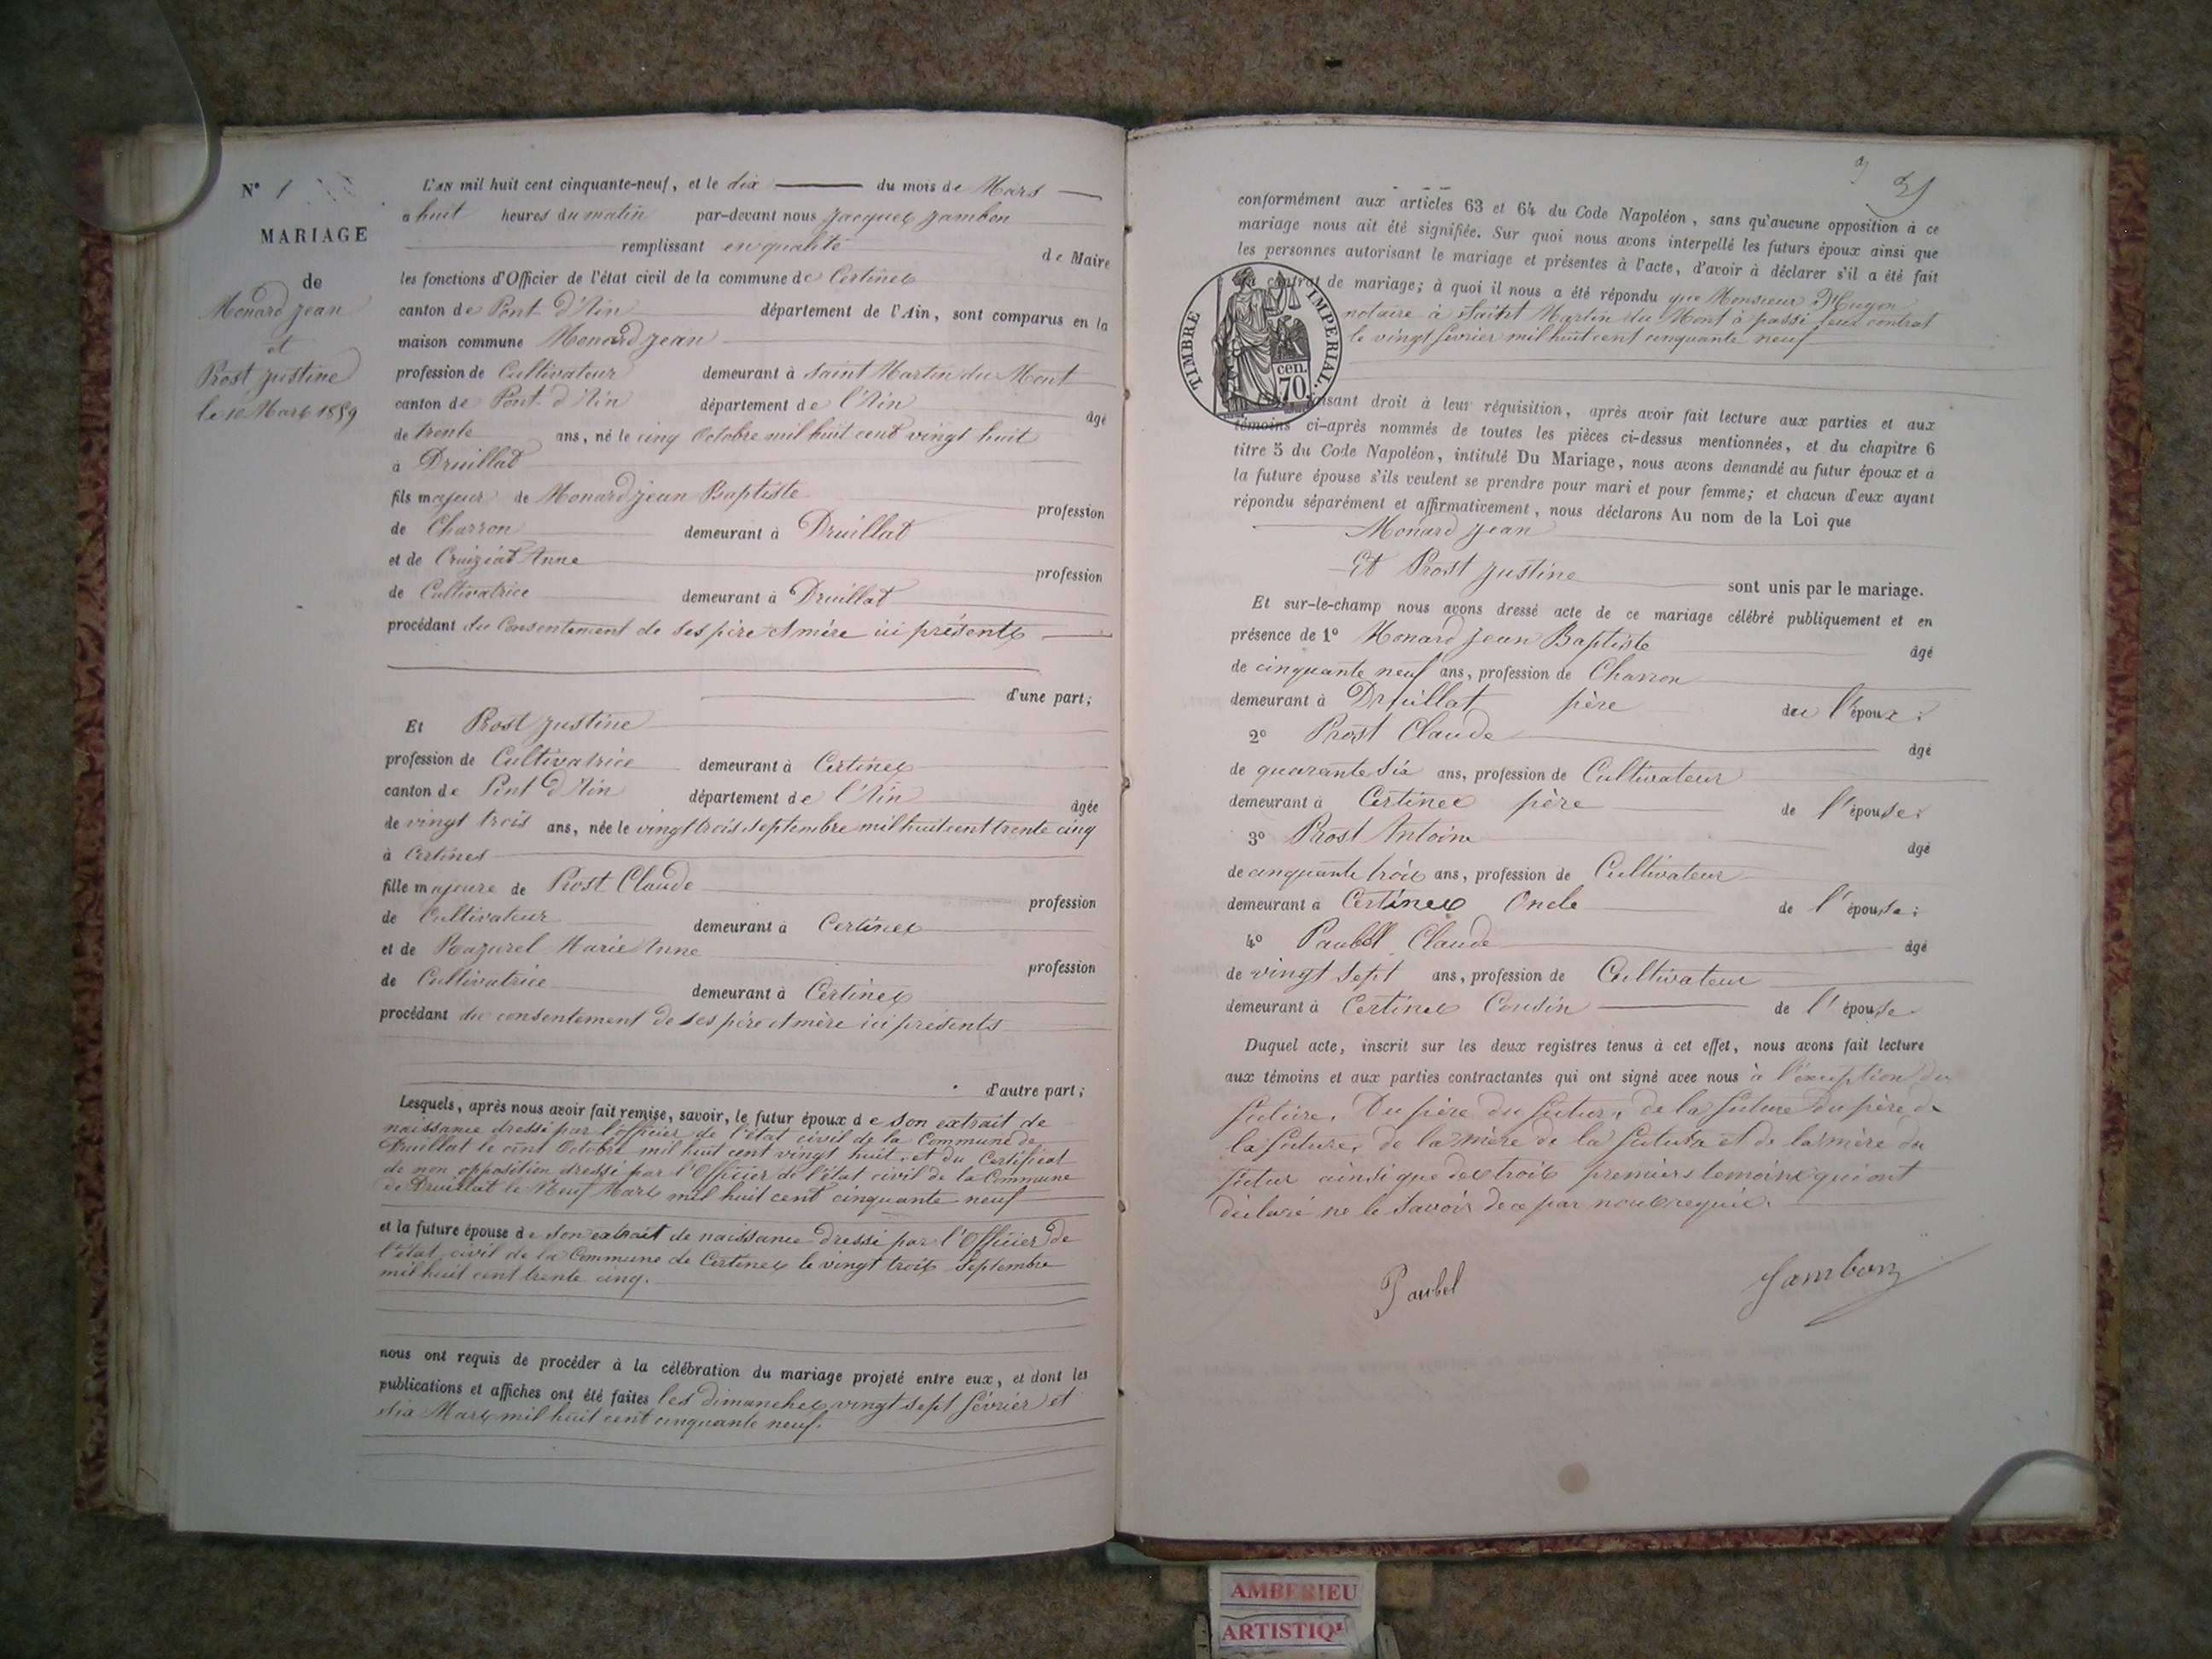 N° 1
MARIAGE
de
Monard Jean
et
Prost Justine
le 10 Mars 1859
L'AN mil huit cent cinquante-neuf, et le dix du mois de Mars
a huit heures du matin par-devant nous Jacques Jambon
remplissant en qualité de Maire
les fonctions d'Officier de l'état civil de la commune de Certines
canton de Pont d'Ain département de l'Ain, sont comparus en la
maison commune Monard Jean
profession de Cultivateur demeurant à Saint Martin du Mont
canton de Pont d'Ain département de l'Ain âgé
de trente ans, né le cinq Octobre mil huit cent vingt huit
à Druillat
fils majeur de Monard Jean Baptiste profession
de Charron demeurant à Druillat
et de Cruiziat Anne profession
de Cultivatrice demeurant à Druillat
procédant du Consentement de ses père et mère ici présents
d'une part;
Et Prost Justine
profession de Cultivatrice demeurant à Certines
canton de Pont d'Ain département de l'Ain âgée
de vingt trois ans, née le vingt trois septembre mil huit cent trente cinq
à Certines
fille majeure de Prost Claude profession
de Cultivateur demeurant à Certines
et de Razurel Marie Anne profession
de Cultivatrice demeurant à Certines
procédant du consentement de ses père et mère ici présents
d'autre part;
Lesquels, après nous avoir fait remise, savoir, le futur époux de son extrait de
naissance dressé par l'officier de l'état civil de la Commune de
Druillat le cinq Octobre mil huit cent vingt huit, et du Certificat
de non opposition dressé par l'Officier de l'état civil de la Commune
de Druillat le Neuf Mars mil huit cent cinquante neuf
et la future épouse de son extrait de naissance dressé par l'Officier de
l'état civil de la Commune de Certines le vingt trois Septembre
mil huit cent trente cinq.
nous ont requis de procéder à la célébration du mariage projeté entre eux, et dont les
publications et affiches ont été faites les dimanches vingt sept février et
six Mars mil huit cent cinquante neuf.
conformément aux articles 63 et 64 du Code Napoléon, sans qu'aucune opposition à ce
mariage nous ait été signifiée. Sur quoi nous avons interpellé les futurs époux ainsi que
les personnes autorisant le mariage et présentes à l'acte, d'avoir à déclarer s'il a été fait
contrat de mariage; à quoi il nous a été répondu que Monsieur Mugon
notaire à Saint Martin du Mont à passé leur contrat
le vingt février mil huit cent cinquante neuf
TIMBRE IMPERIAL.
cen.
70
faisant droit à leur réquisition, après avoir fait lecture aux parties et aux
témoins ci-après nommés de toutes les pièces ci-dessus mentionnées, et du chapitre 6
titre 5 du Code Napoléon, intitulé Du Mariage, nous avons demandé au futur époux et à
la future épouse s'ils veulent se prendre pour mari et pour femme; et chacun d'eux ayant
répondu séparément et affirmativement, nous déclarons Au nom de la Loi que
Monard Jean
Et Prost Justine sont unis par le mariage.
Et sur-le-champ nous avons dressé acte de ce mariage célébré publiquement et en
présence de 1° Monard Jean Baptiste âgé
de cinquante neuf ans, profession de Charron
demeurant à Druillat père de l'époux;
2° Prost Claude âgé
de quarante six ans, profession de Cultivateur
demeurant à Certines père de l'épouse;
3° Prost Antoine âgé
de cinquante trois ans, profession de Cultivateur
demeurant à Certines Oncle de l'épouse;
4° Paubel Claude âgé
de vingt sept ans, profession de Cultivateur
demeurant à Certines Cousin de l'épouse
Duquel acte, inscrit sur les deux registres tenus à cet effet, nous avons fait lecture
aux témoins et aux parties contractantes qui ont signé avec nous à l'exception du
future, Du père du futur, de la future du père de
la future, de la mère de la future et de la mère du
futur ainsi que des trois premiers temoins qui ont
déclaré ne le savoir de ce par nous requis.
Paubel Jambon
AMBERIEU
ARTISTIQ